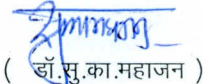 ( डॉ.सु.का.महाजन )